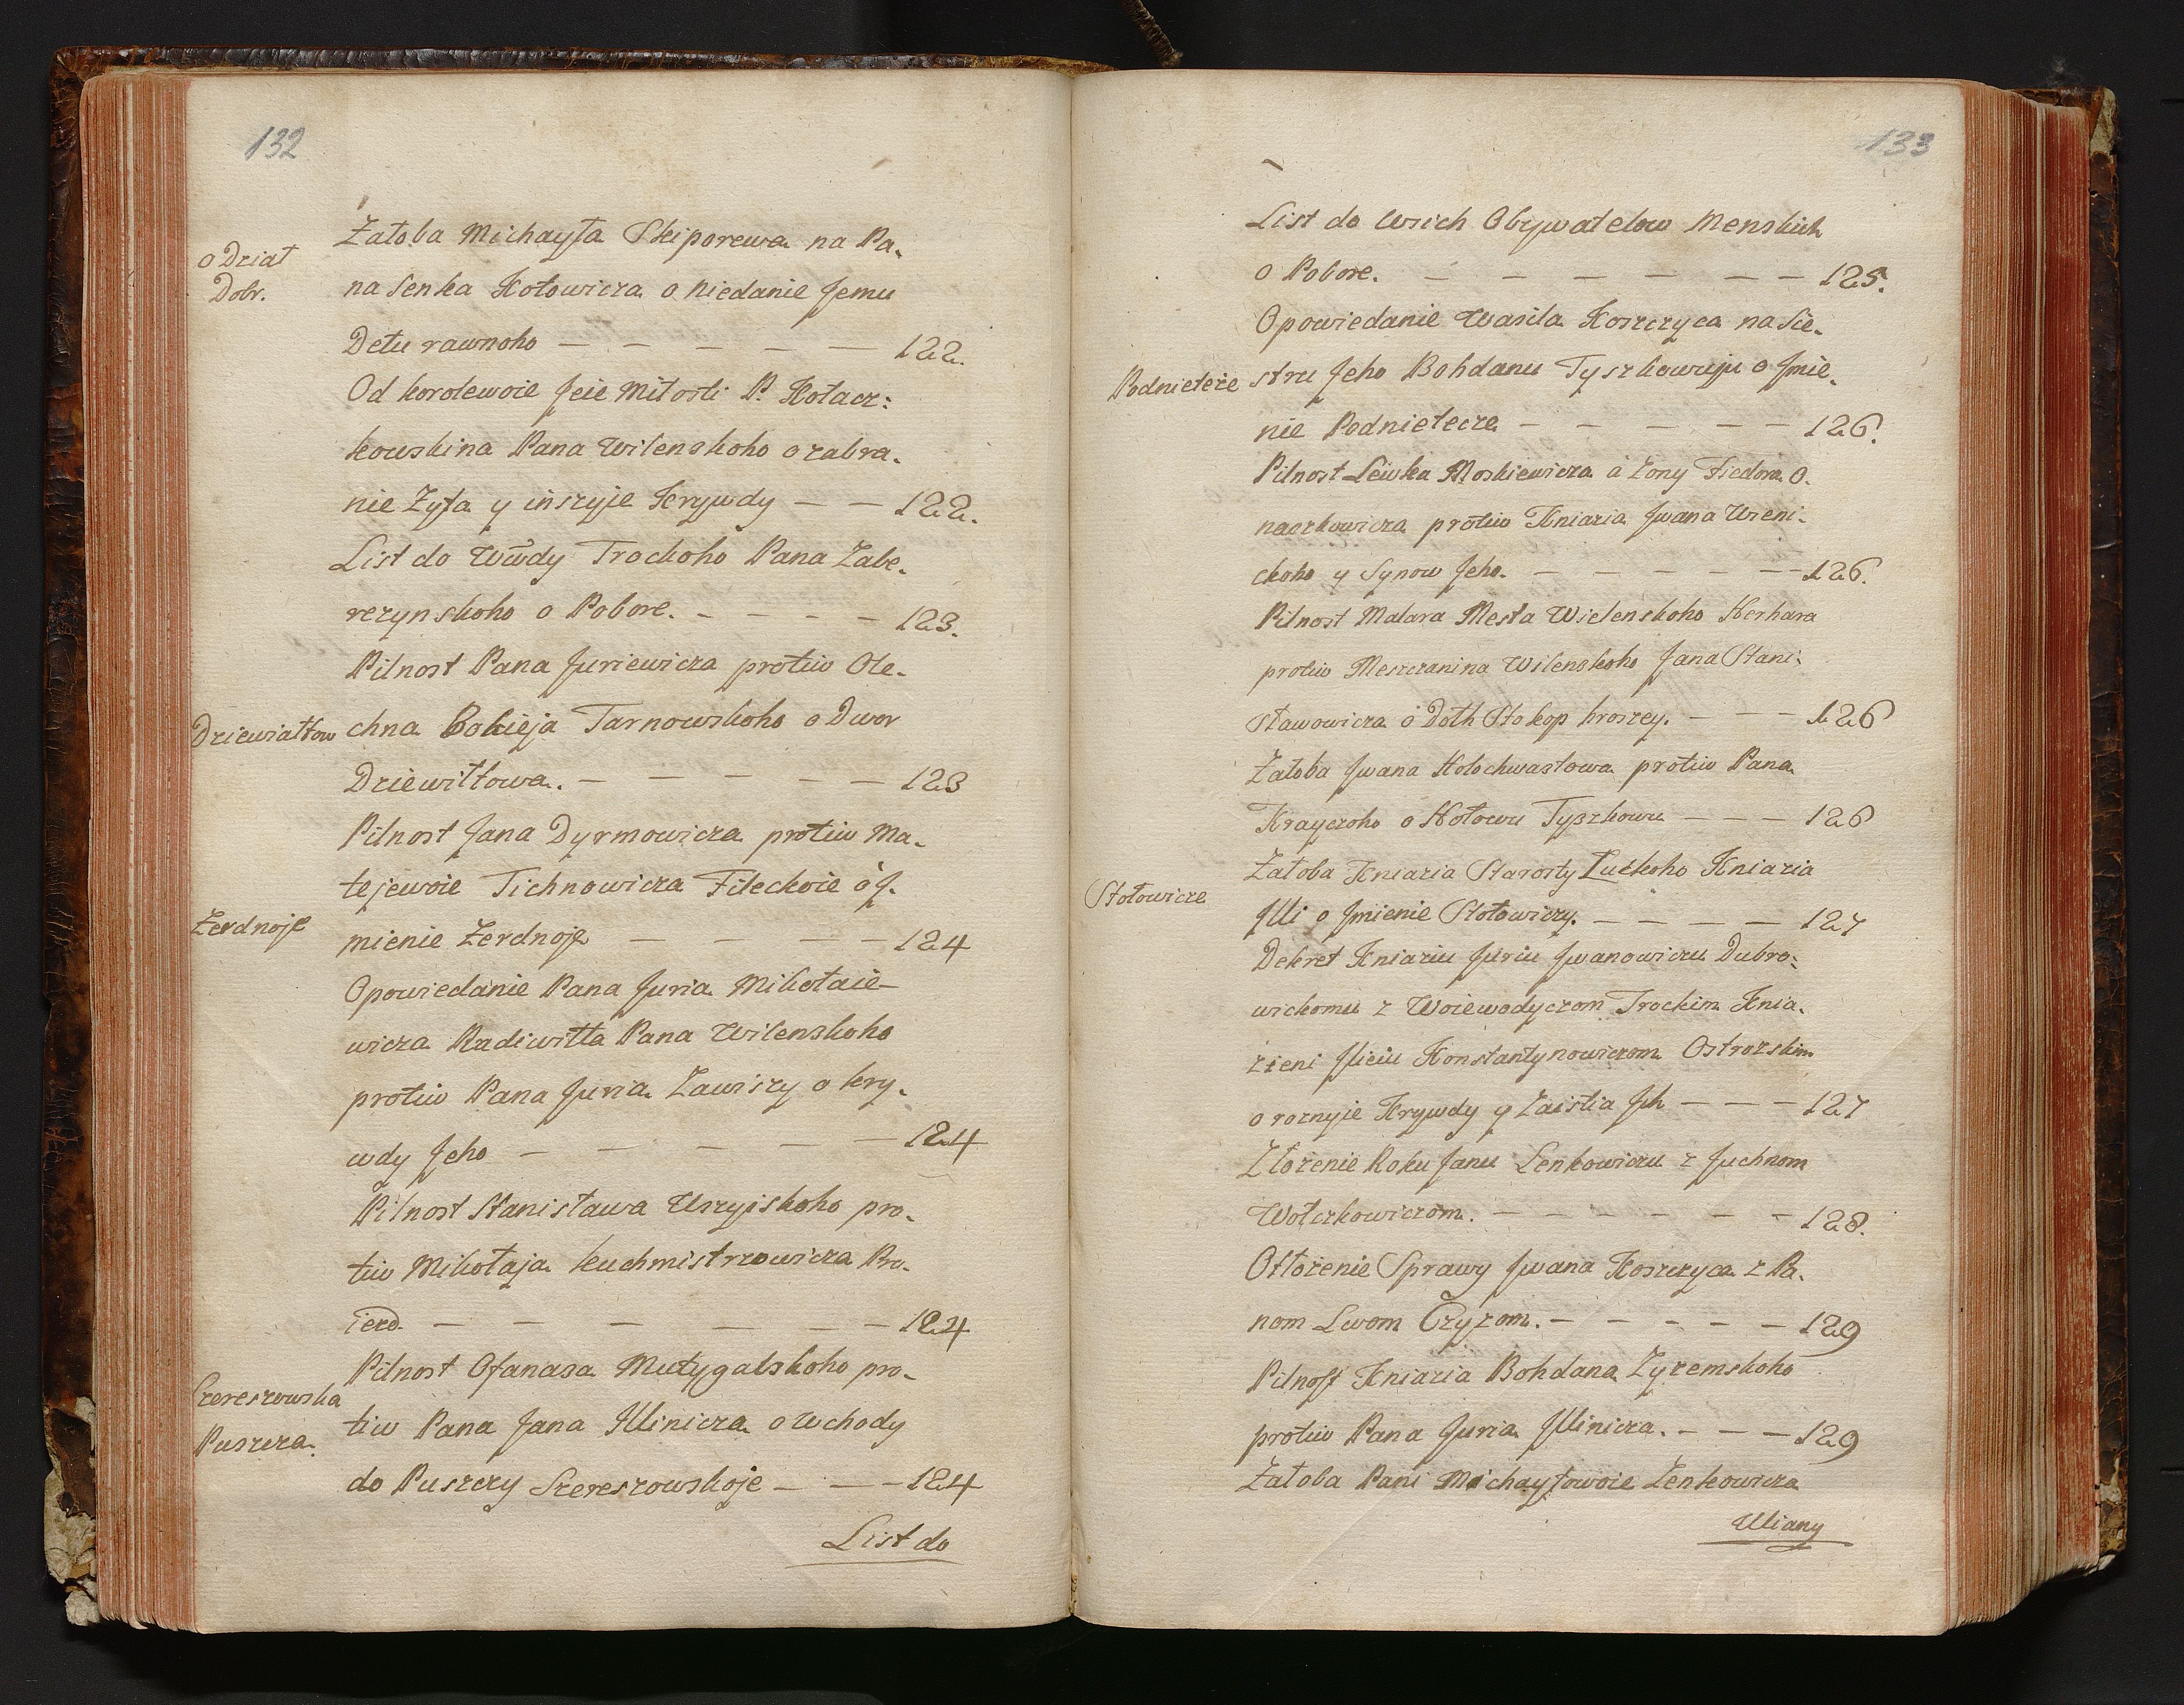 132
Żałoba Michayła Skiporewa na Pa-
o Dział
Dobr.
na Senka Kotowicza o niedanie Jemu
Dełu rawnoho — — — — — 122.
Od korolewoie Jeie Miłosti P. Kołacz:
kowskina Pana Wilenskoho o zabra-
nie Żyta y inszyie Krywdy — — 122.
List do Wwdy Trockoho Pana Zabe-
rezynskoho o Pobore. — — — — 123.
Pilnost Pana Juriewicza protiw Ole-
Dziewiałtow
chna Bokieja Tarnowskoho o Dwor
Dziewiltowa. — — — — — 123
Pilnost Jana Dyrmowicza protiw Ma-
tejewoie Tichnowicza Fileckoie o J-
Żerdnoje
mienie Żerdnoje — — — — 124
Opowiedanie Pana Juria Mikołaie-
wicza Radiwiłła Pana Wilenskoho
protiw Pana Juria Zawiszy o kry-
wdy Jeho — — — — — 124
Pilnost Stanisława Uszyiskoho pro-
tiw Mikołaja Kuchmistrzowicza Pro-
— — — — — — 124
Pilnost Ofanasa Mutygalskoho pro-
Szereszowska
Puszcza.
tiw Pana Jana Illinicza o wchody
do Puszczy Szereszowskoje — — — 124
List do
133
List do Wsich Obywatelow Menskich
o Pobore. — — — — — — — 125.
Opowiedanie Wasila Koszczyca na Sie-
Podnieteże
stru Jeho Bohdanu Tyszkowuju o Jmie-
nie Podnieteczæ — — — — — 126.
Pilnost Lewka Moskiewicza á Żony Fiedora O.
naczkowicza protiw Kniazia Jwana Wieni-
ckoho y Synow Jeho. — — — — — — 126.
Pilnost Malara Mesta Wielenskoho Herhara
protiw Meszczanina Wilenskoho Jana Stani-
sławowicza o Dołh Sto kop hroszey. — — — 126
Żałoba Jwana Hołochwastowa protiw Pana
Krayczoho o Hołowu Tyszkowu — — — 126
Żałoba Kniazia Starosty Łuckoho Kniazia
Stołowicze
Illi o Jmienie Stołowiczy. — — — — 127
Dekret Kniaziu Juriu Jwanowiczu Dubro-
wickomu z Woiewodyczom Trockim Knia-
ziem Ilieiu Konstantynowiczom Ostrozskim
o roznyie Krywdy y Zaistia Jch — — — 127
Złożenie Roku Janu Lenkowiczu z Juchnom
Wołczkowiczom. — — — — — — 128.
Otłożenie Sprawy Jwana Koszczyca z Pa-
nom Lwom Czyżom. — — — — — 129
Pilnost Kniazia Bohdana Żyżemskoho
protiw Pana Juria Illinicza. — — — 129
Żałoba Pani Michayłowoie Zenkowicza
Uliany